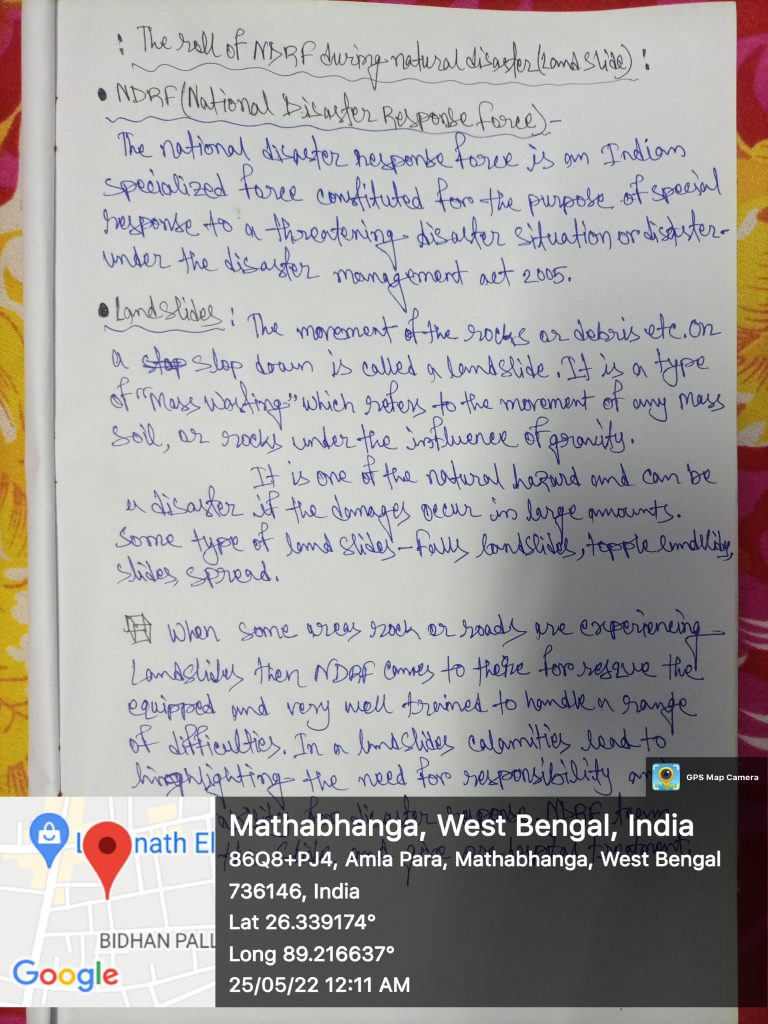 : The roll of NDRF during natural disaster (Land slide) :
• NDRF (National Disaster Response force) -
The national disaster response force is an Indian
specialized force constituted for the purpose of special
response to a threatening disaster situation or disaster
under the disaster management act 2005.
• Landslides : The movement of the rocks or debris etc. on
a stop slop down is called a landslide. It is a type
of "Mass Wasting" which refers to the movement of any mass
soil, or rocks under the influence of gravity.
It is one of the natural hazard and can be
a disaster if the damages occur in large amounts.
Some type of land slides - falls landslides, topple landslides,
slides, spread.
When some areas rock or roads are experiencing
Landslides then NDRF comes to there for resque the
equipped and very well trained to handle a range
of difficulties. In a landslides calamities lead to
the need for responsibility
GPS Map Camera
for disaster response. NDRF
the and give treatment
Mathabhanga, West Bengal, India
86Q8+PJ4, Amla Para, Mathabhanga, West Bengal
736146, India
Lat 26.339174°
Long 89.216637°
25/05/22 12:11 AM
nath El
BIDHAN PALL
Google